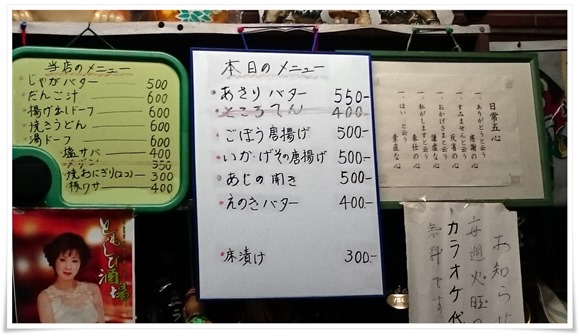 当店のメニュー
じゃがバター 500
だんご汁 600
揚げ出しドーフ 600
焼きうどん 600
湯ドーフ 600
塩サバ 400
350
焼おにぎり(2コ) 300
板ワサ 400
本日のメニュー
あさりバター 550-
ところてん 400-
ごぼう唐揚げ 500-
いかげその唐揚げ 500-
あじの開き 500-
えのきバター 400-
床漬け 300-
日常五心
一、ありがとうと云う 感謝の心
一、すみませんと云う 反省の心
一、おかげさまと云う 謙虚な心
一、私がしますと云う 奉仕の心
一、はいと云う 素直な心
ともしび酒場
お知らせ
毎週火曜
カラオケ代
無料です